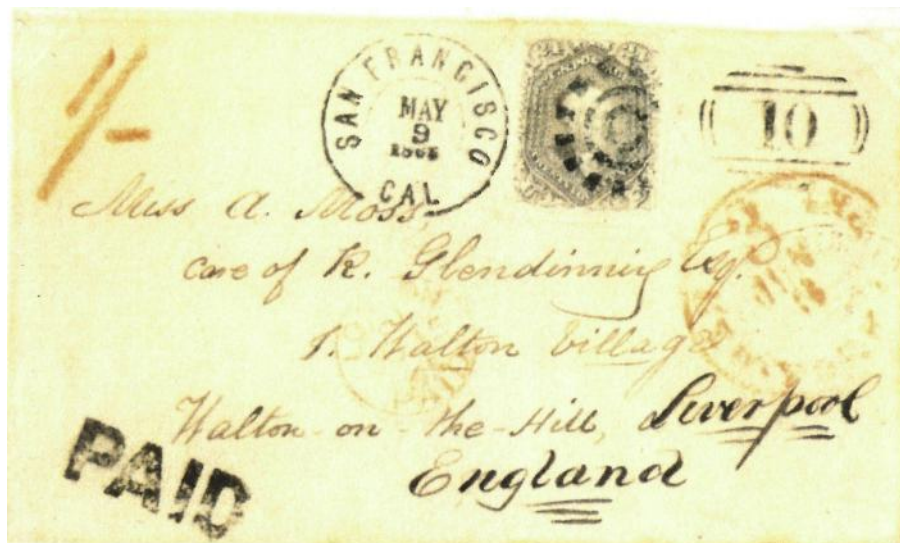 1/-
SAN FRANCISCO
MAY
9
CAL
10
Miss A. Moss,
care of R. Glendinning Esq.
1. Walton Village
Walton-on-the-Hill, Liverpool
England
PAID